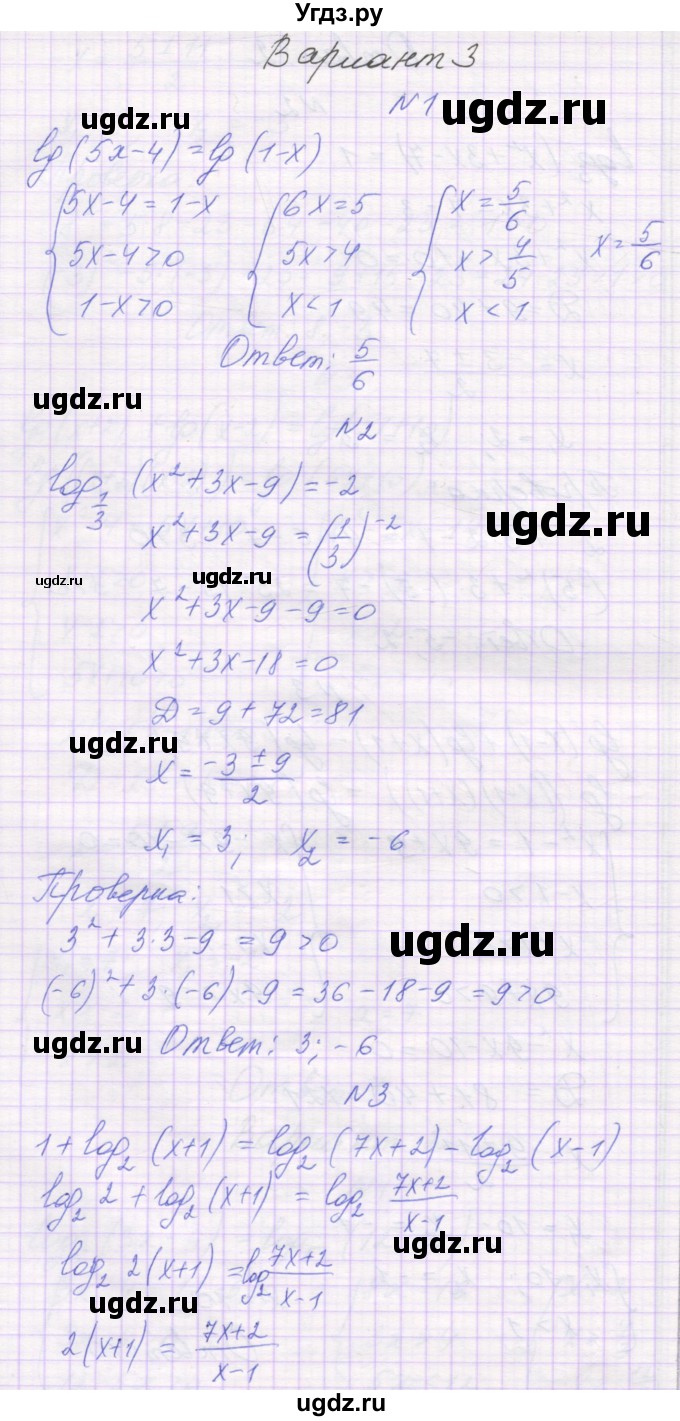 Угдз.ру
Вариант 3
N1
ugdz.ru
ugdz.ru
lg(5x-4)=lg(1-x)
{5x-4=1-x {6x=5 {x=5/6
5x-4>0 5x>4 x>4/5 x=5/6
1-x>0 x<1 x<1
Ответ: 5/6
ugdz.ru
N2
log_{1/3}(x²+3x-9)=-2
ugdz.ru
x²+3x-9=(1/3)^{-2}
ugdz.ru ugdz.ru
x²+3x-9-9=0
x²+3x-18=0
D=9+72=81
ugdz.ru
x=(-3±9)/2
x₁=3; x₂=-6
Проверка:
3²+3·3-9=9>0
ugdz.ru
(-6)²+3·(-6)-9=36-18-9=9>0
ugdz.ru
Ответ: 3; -6
N3
1+log₂(x+1)=log₂(7x+2)-log₂(x-1)
log₂2+log₂(x+1)=log₂ (7x+2)/(x-1)
ugdz.ru
log₂2(x+1)=log₂ (7x+2)/(x-1)
ugdz.ru
2(x+1)=(7x+2)/(x-1)
ugdz.ru